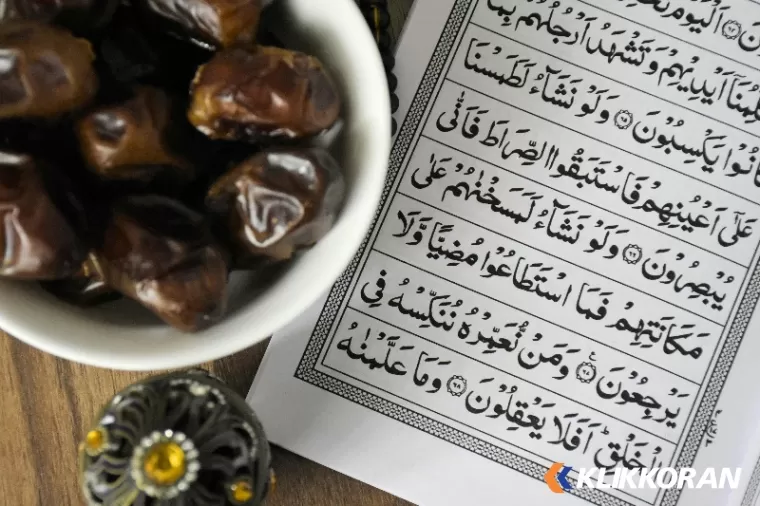 اَلْيَوْمَ
اَيْدِيْهِمْ وَتَشْهَدُ اَرْجُلُهُمْ بِمَا
كَانُوْا يَكْسِبُوْنَ ۝٦٥ وَلَوْ نَشَآءُ لَطَمَسْنَا
عَلٰٓى اَعْيُنِهِمْ فَاسْتَبَقُوا الصِّرَاطَ فَاَنّٰى
يُبْصِرُوْنَ ۝٦٦ وَلَوْ نَشَآءُ لَمَسَخْنٰهُمْ عَلٰى
مَكَانَتِهِمْ فَمَا اسْتَطَاعُوْا مُضِيًّا وَّلَا
يَرْجِعُوْنَ ۝٦٧ وَمَنْ نُّعَمِّرْهُ نُنَكِّسْهُ فِى
الْخَلْقِ ؕ اَفَلَا يَعْقِلُوْنَ ۝٦٨ وَمَا عَلَّمْنٰهُ
KLIKKORAN